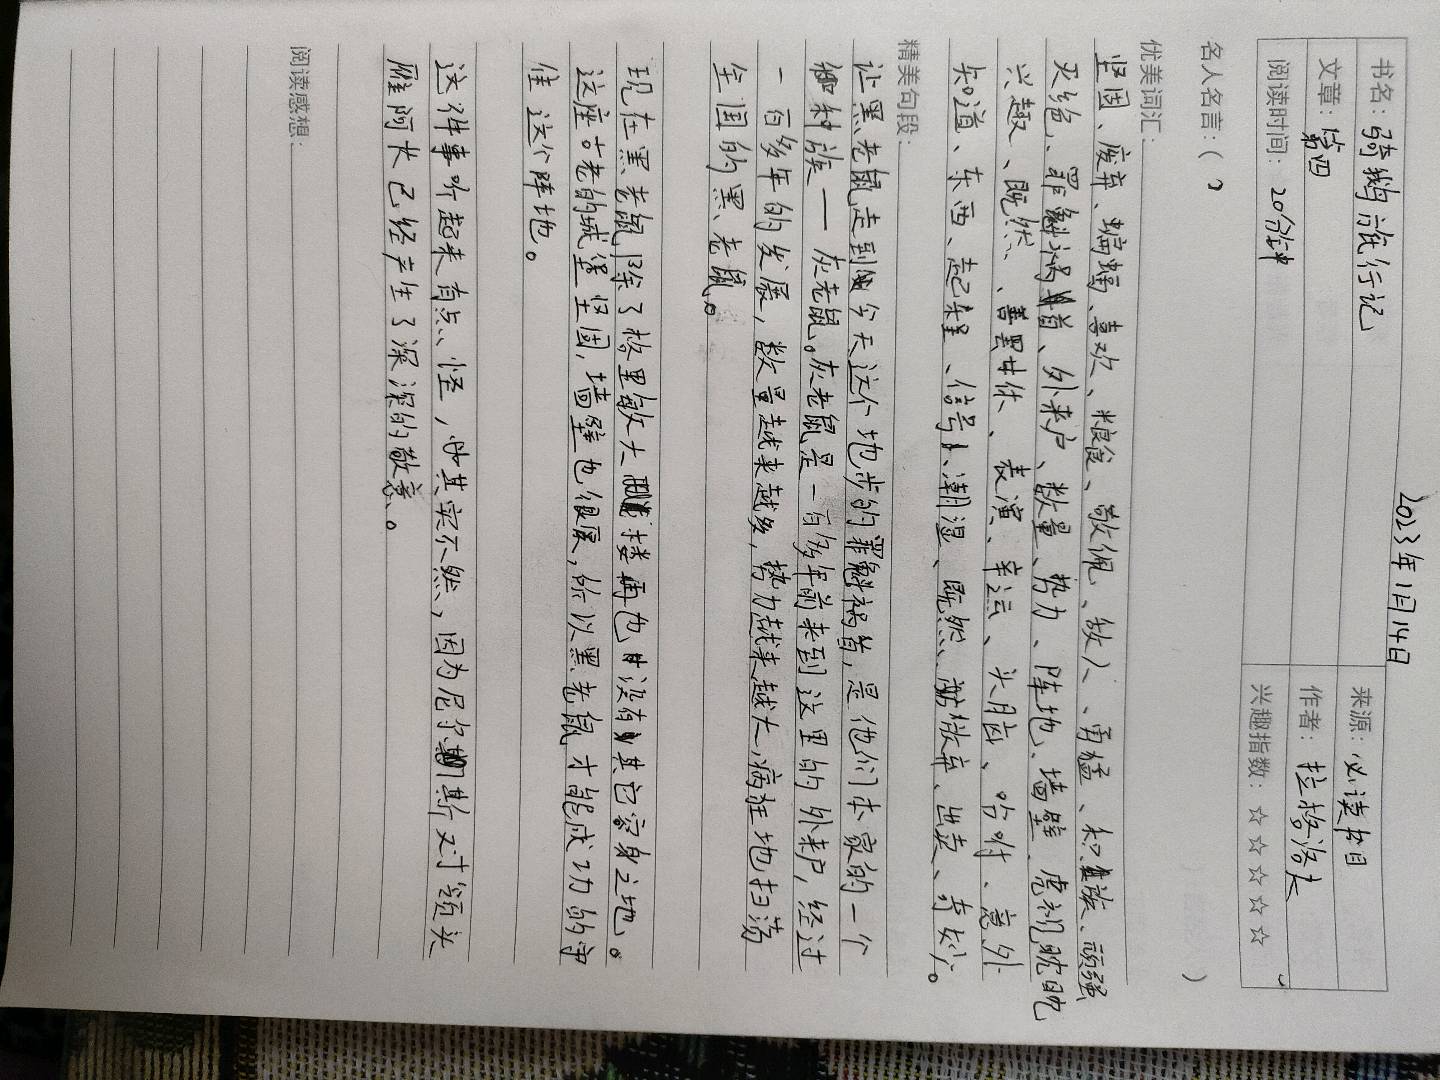 2023年1月14日
书名：骑鹅旅行记
来源：必读书目
文章：第四
作者：拉格洛夫
阅读时间：20分钟
兴趣指数：☆☆☆☆☆
名人名言：( )
优美词汇：
坚固、废弃、蝙蝠、喜欢、粮食、敬佩、敌人、勇猛、种族、顽强
灭绝、罪魁祸首、外来户、数量、势力、阵地、墙壁、虎视眈眈
兴趣、既然、善罢甘休、表演、幸运、头脑、吩咐、意外
知道、东西、起程、信号、潮湿、既然、放弃、出卖、
精美句段：
让黑老鼠走到今天这个地步的罪魁祸首，是他们本家的一个
种族——灰老鼠。灰老鼠是一百多年前来到这里的外来户，经过
一百多年的发展，数量越来越多，势力越来越大，疯狂地扫荡
全国的黑老鼠。
现在黑老鼠除了格里敏大楼再也没有其它容身之地。
这座古老的城堡坚固，墙壁也很厚，所以黑老鼠才能成功的守
住这个阵地。
这件事听起来有点怪，也其实不然，因为尼尔斯对领头
雁阿卡已经产生了深深的敬意。
阅读感想：